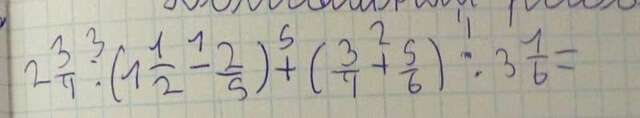 2 3/4 : (1 1/2 - 2/5) + (3/4 + 5/6) : 3 1/6 =